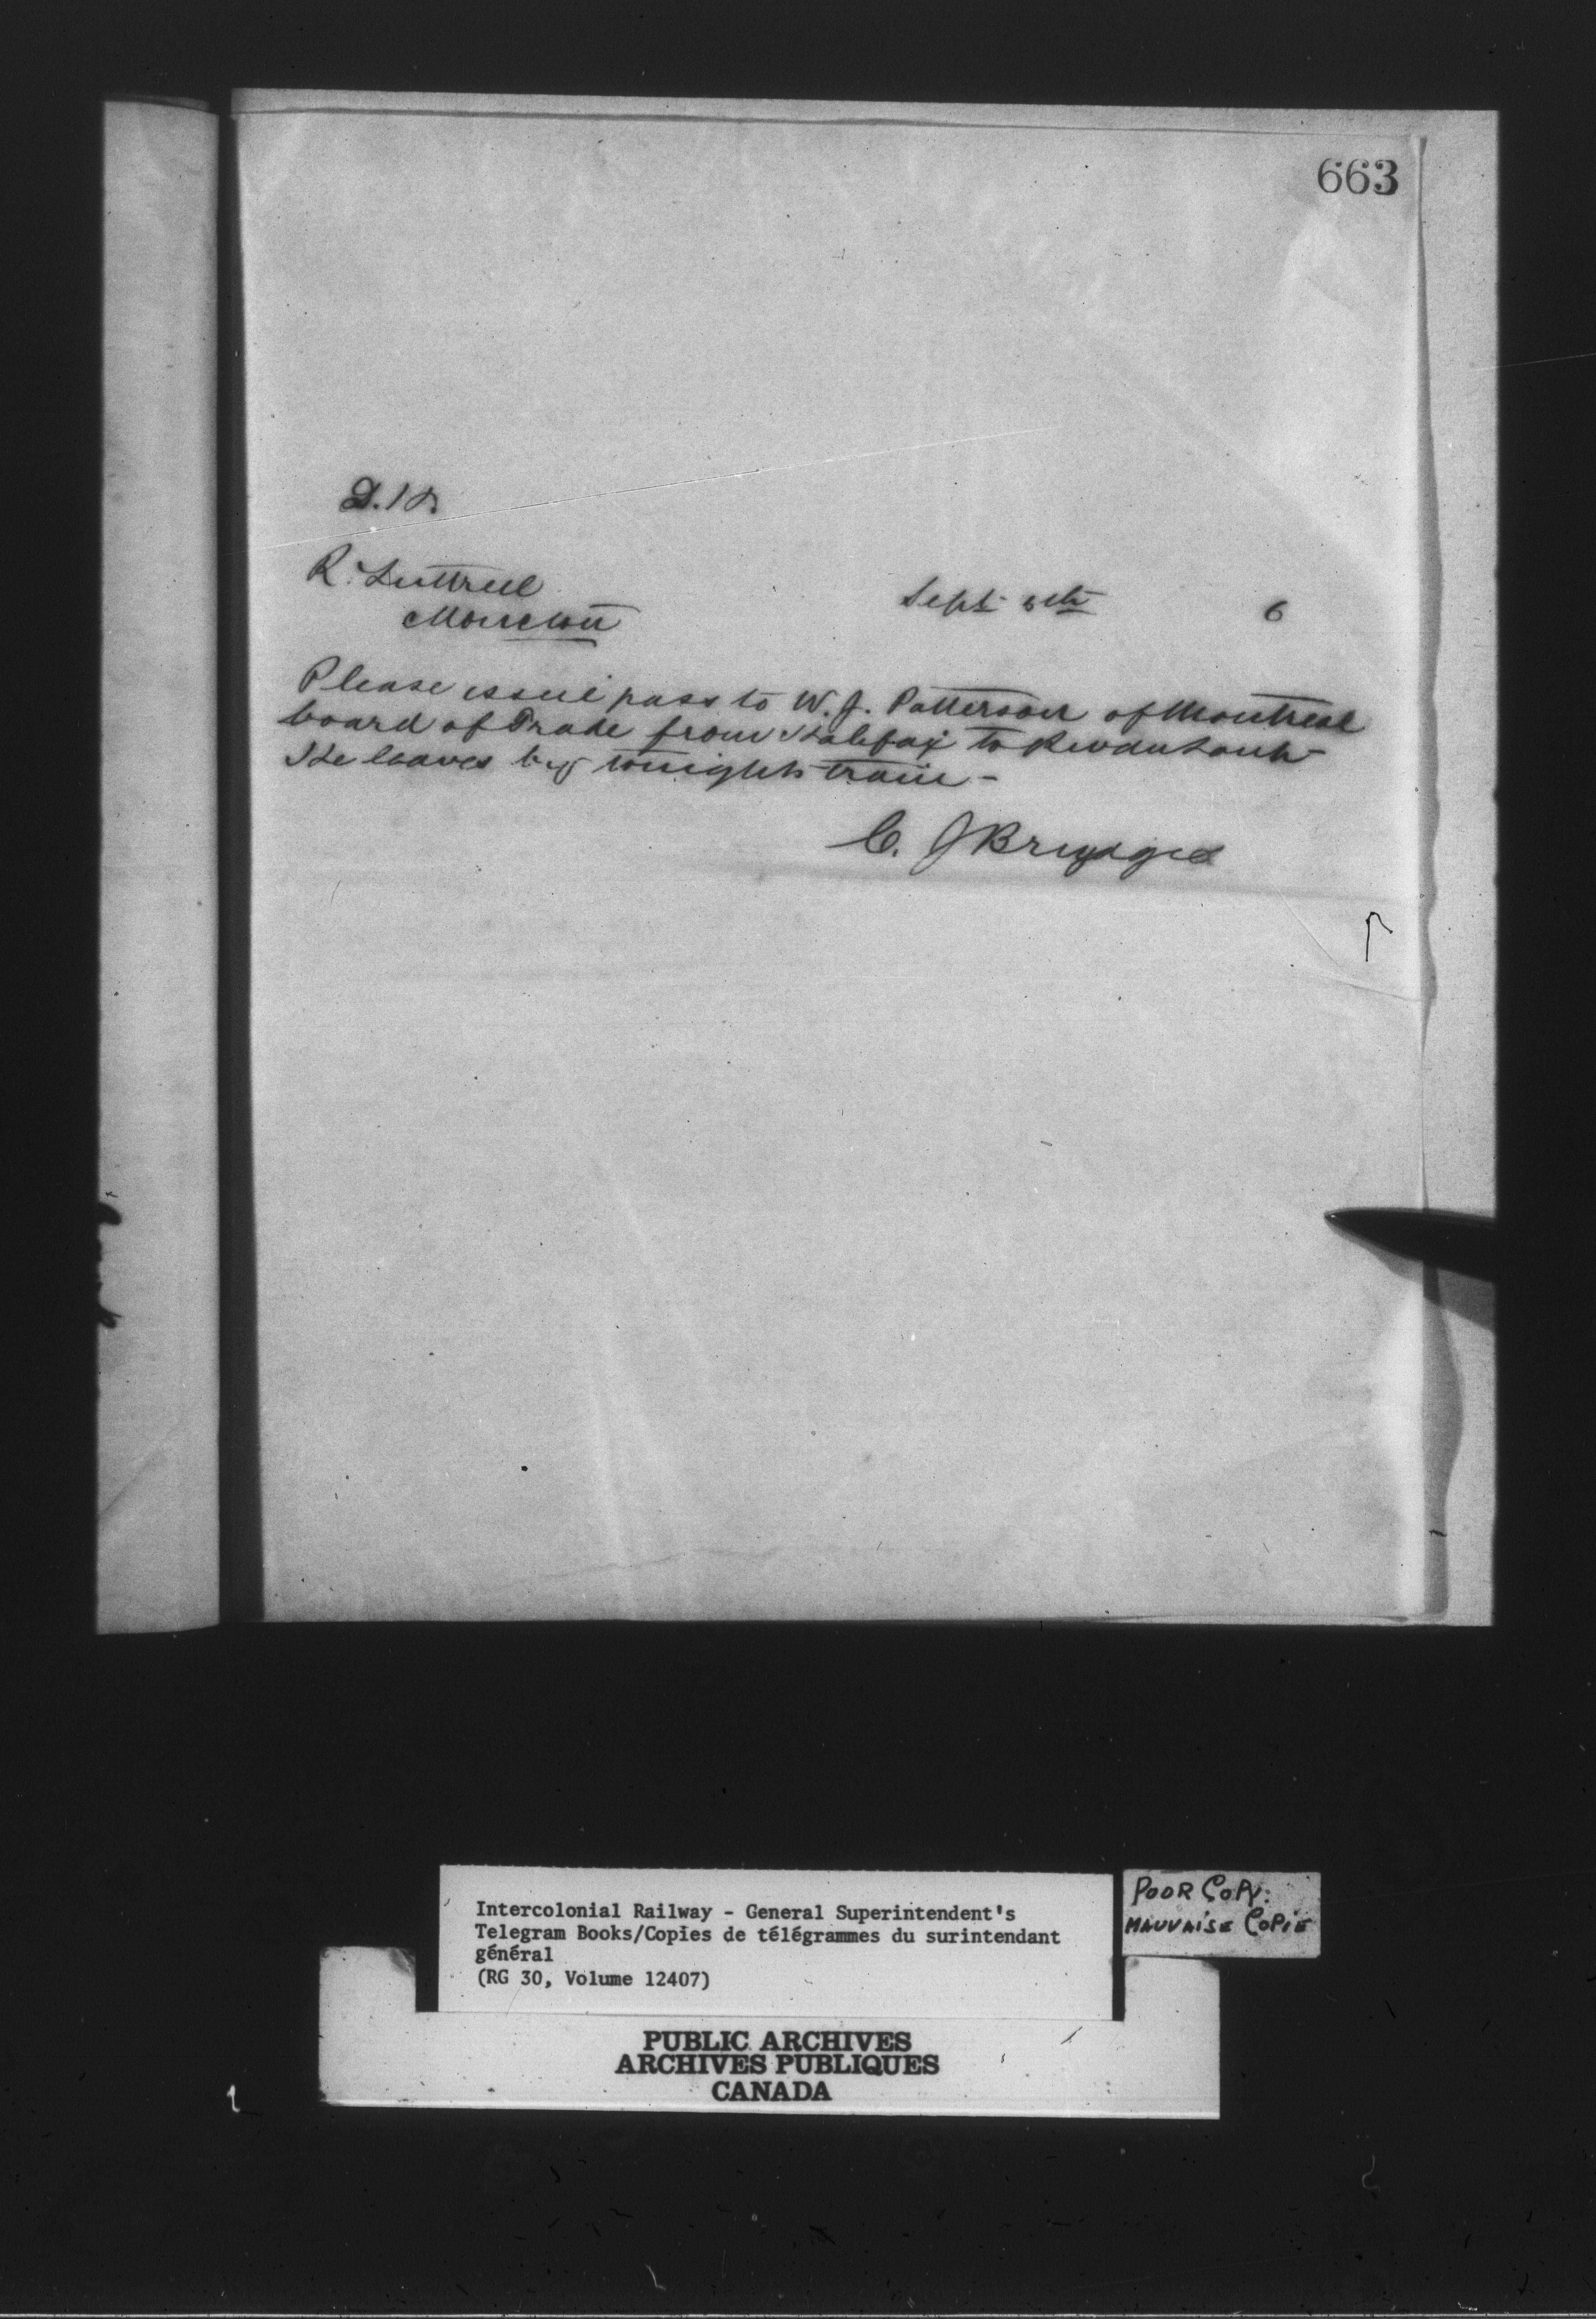 663
R. Luttrell
Moncton
Sept 5th 6
Please issue pass to W. J. Patterson of Montreal
board of Trade from Halifax to
He leaves by tonights train -
C. J Brydges
Intercolonial Railway - General Superintendent's
Telegram Books/Copies de télégrammes du surintendant
général
(RG 30, Volume 12407)
POOR COPY.
MAUVAISE COPIE
PUBLIC ARCHIVES
ARCHIVES PUBLIQUES
CANADA